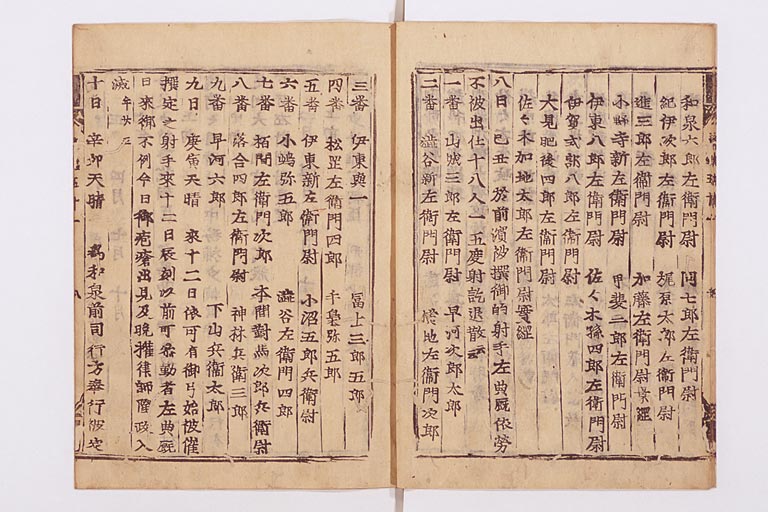 和泉六郎左衛門尉 同七郎左衛門尉
紀伊次郎左衛門尉 梶原太郎左衛門尉
進三郎左衛門尉 加藤左衛門尉景經
小野寺新左衛門尉 甲斐三郎左衛門尉
伊東八郎左衛門尉 佐々木孫四郎左衛門尉
伊賀式部八郎左衛門尉
大見肥後四郎左衛門尉
佐々木加地太郎左衛門尉實經
八日 己丑 於前濱 撰御的射手左典厩依勞
不被出仕十八人 一五度射訖退散云云
一番 山城三郎左衛門尉 早河次郎太郎
二番 澁谷新左衛門尉 左衛門次郎
三番 伊東與一 冨士三郎五郎
四番 松岡左衛門四郎 平嶋弥五郎
五番 伊東新左衛門尉 小沼五郎兵衛尉
六番 小嶋弥五郎 澁谷左衛門四郎
七番 栢間左衛門次郎 本間對馬次郎兵衛尉
八番 落合四郎左衛門尉 神林兵衛三郎
九番 早河六郎 下山兵衛太郎
九日 庚寅天晴 來十二日依可有御弓始被催
撰定之射手來十二日辰刻以前可參勤者左典厩
日來御不例今日御疱瘡出見及晩摧律師隆政入
滅年廿五
十日 辛卯天晴 爲和泉前司行方奉行被定